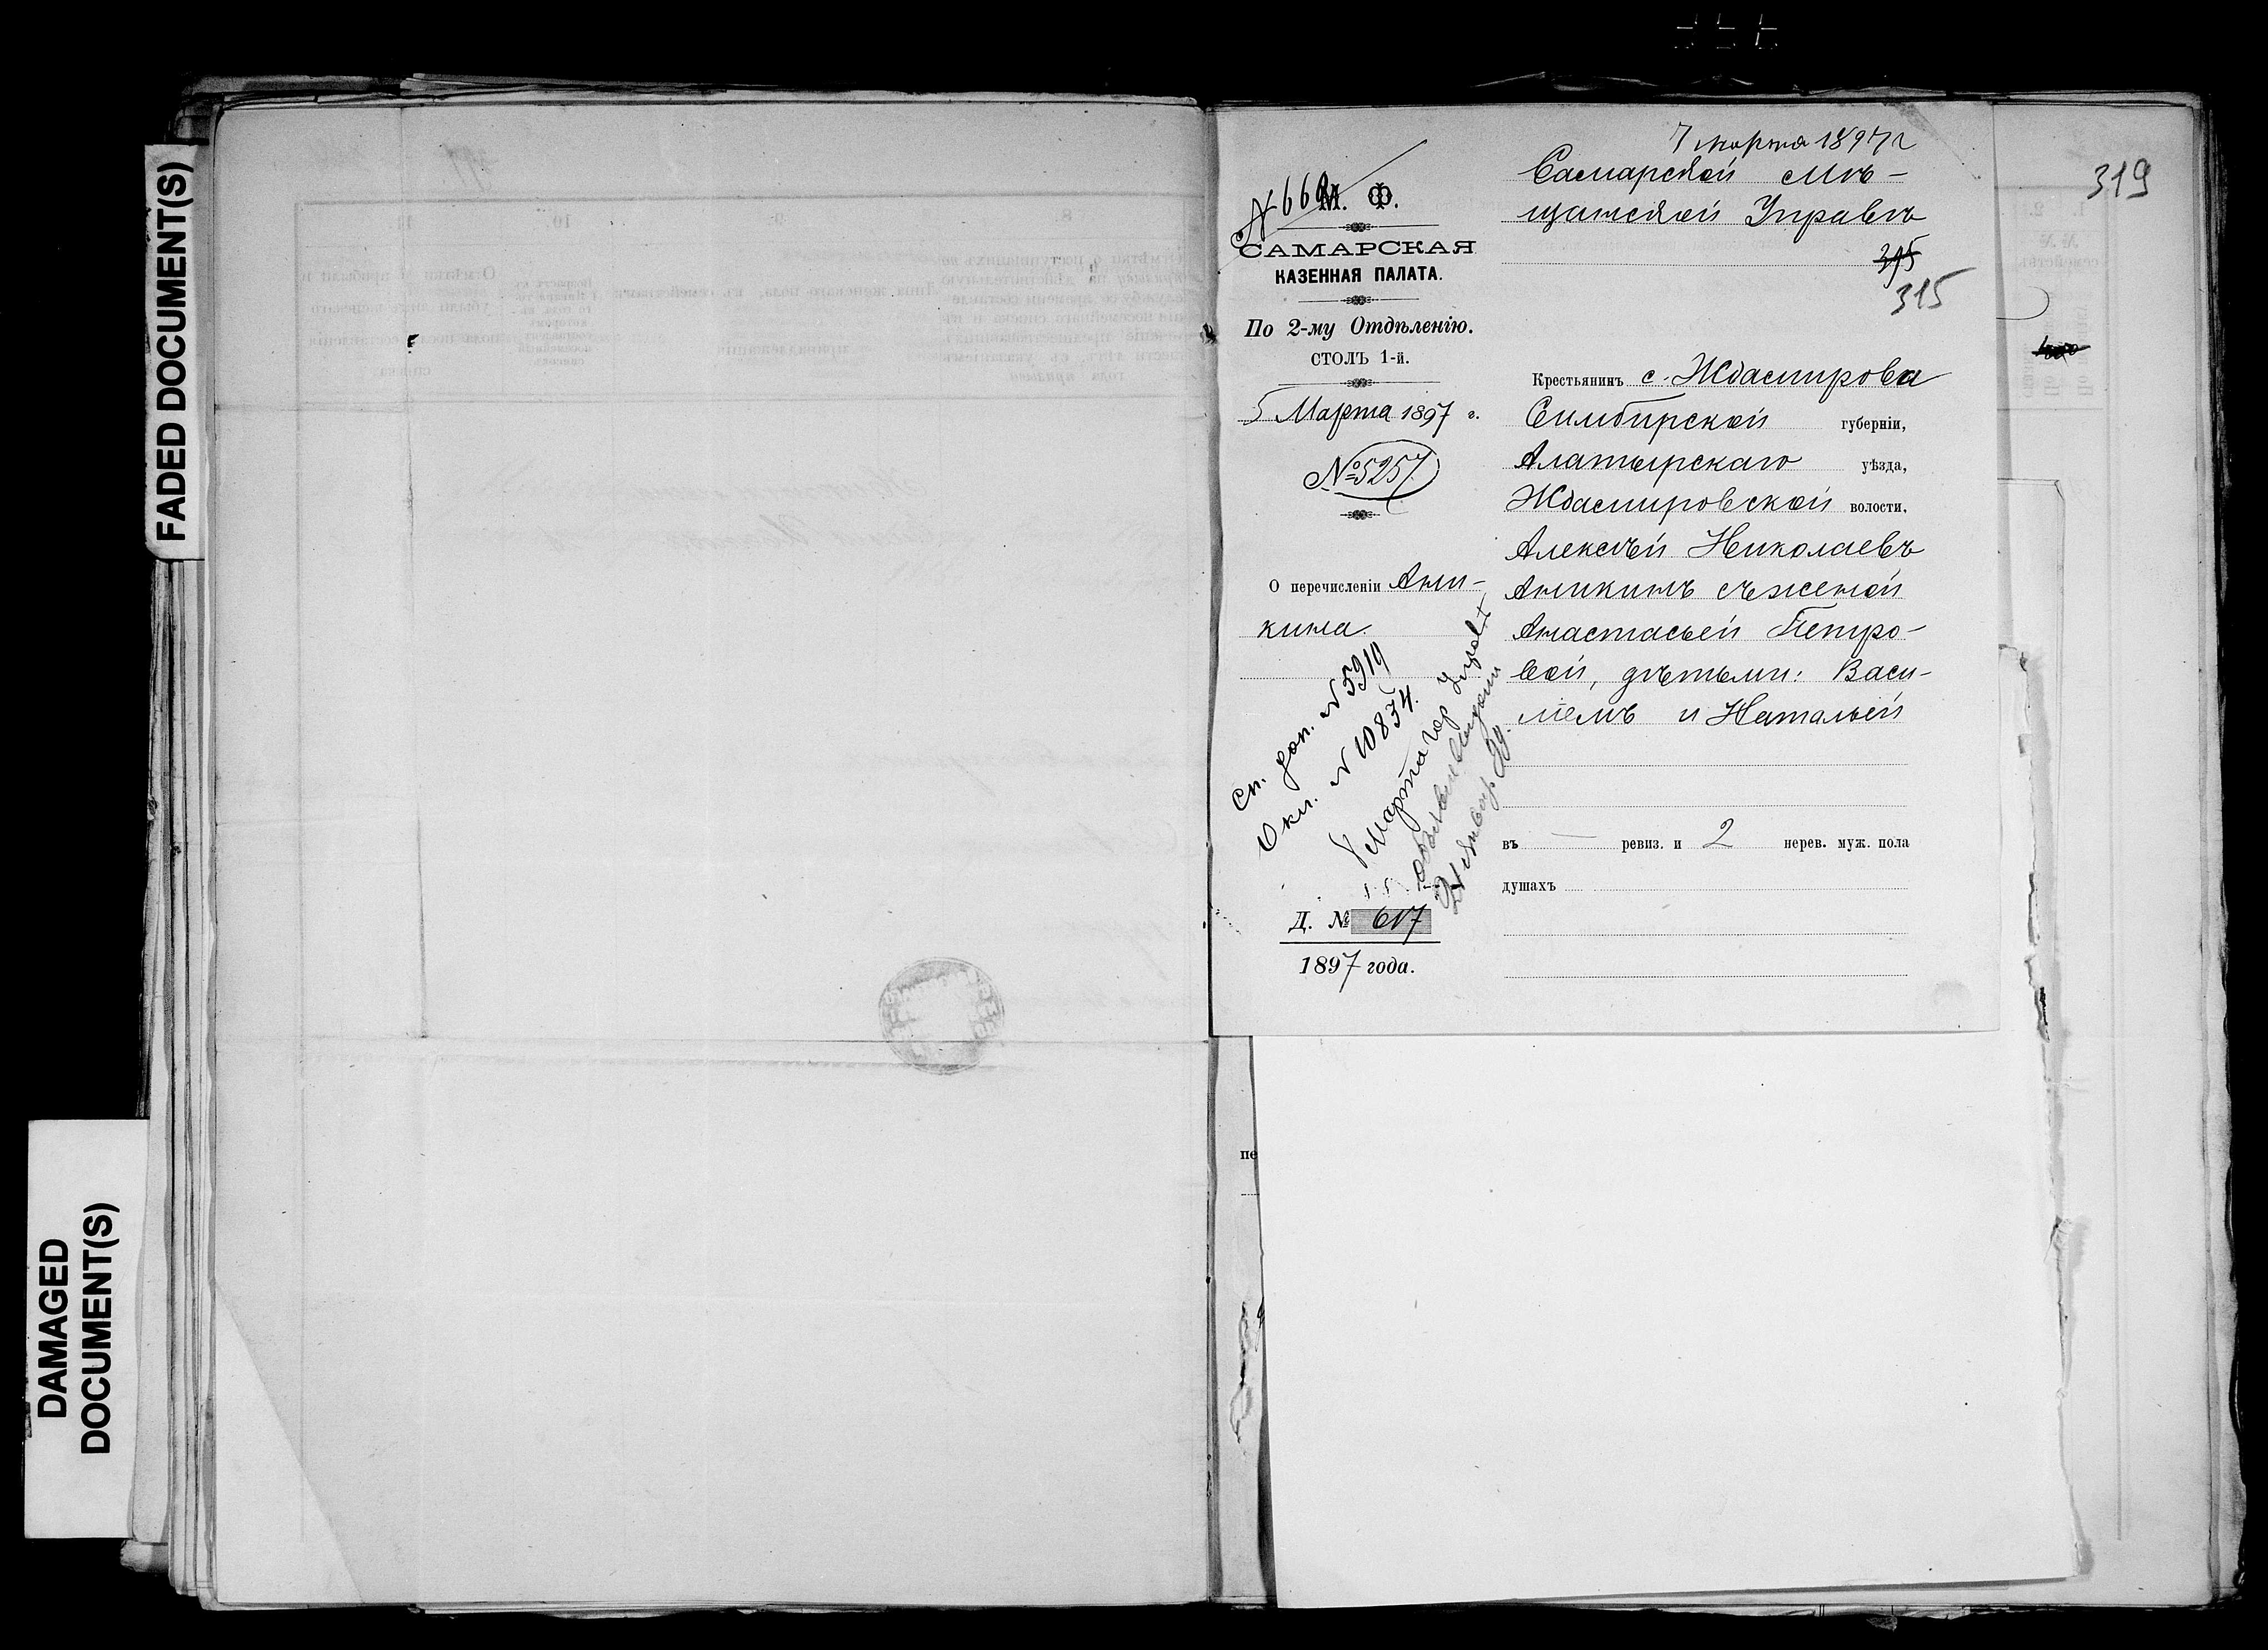 FADED DOCUMENT(S)
DAMAGED
DOCUMENT(S)
319
7 марта 1897 г
№ 669
М. Ф.
САМАРСКАЯ
КАЗЕННАЯ ПАЛАТА.
По 2-му Отдѣленію.
СТОЛЪ 1-й.
5 Марта 1897 г.
№ 5257
О перечисленіи Ани-
кина.
Сп. доп. № 5919
Окл. № 10834.
Д. № 617
1897 года.
Самарской Мѣ-
щанской Управѣ
315
315
Крестьянинъ с. Ждамирова
Симбирской губерніи,
Алатырскаго уѣзда,
Ждамировской волости,
Алексѣй Николаевъ
Аникинъ съ женой
Анастасьей Петро-
вой, дѣтьми: Васи-
ліемъ и Натальей
въ — ревиз. и 2 нерев. муж. пола
душахъ
пе